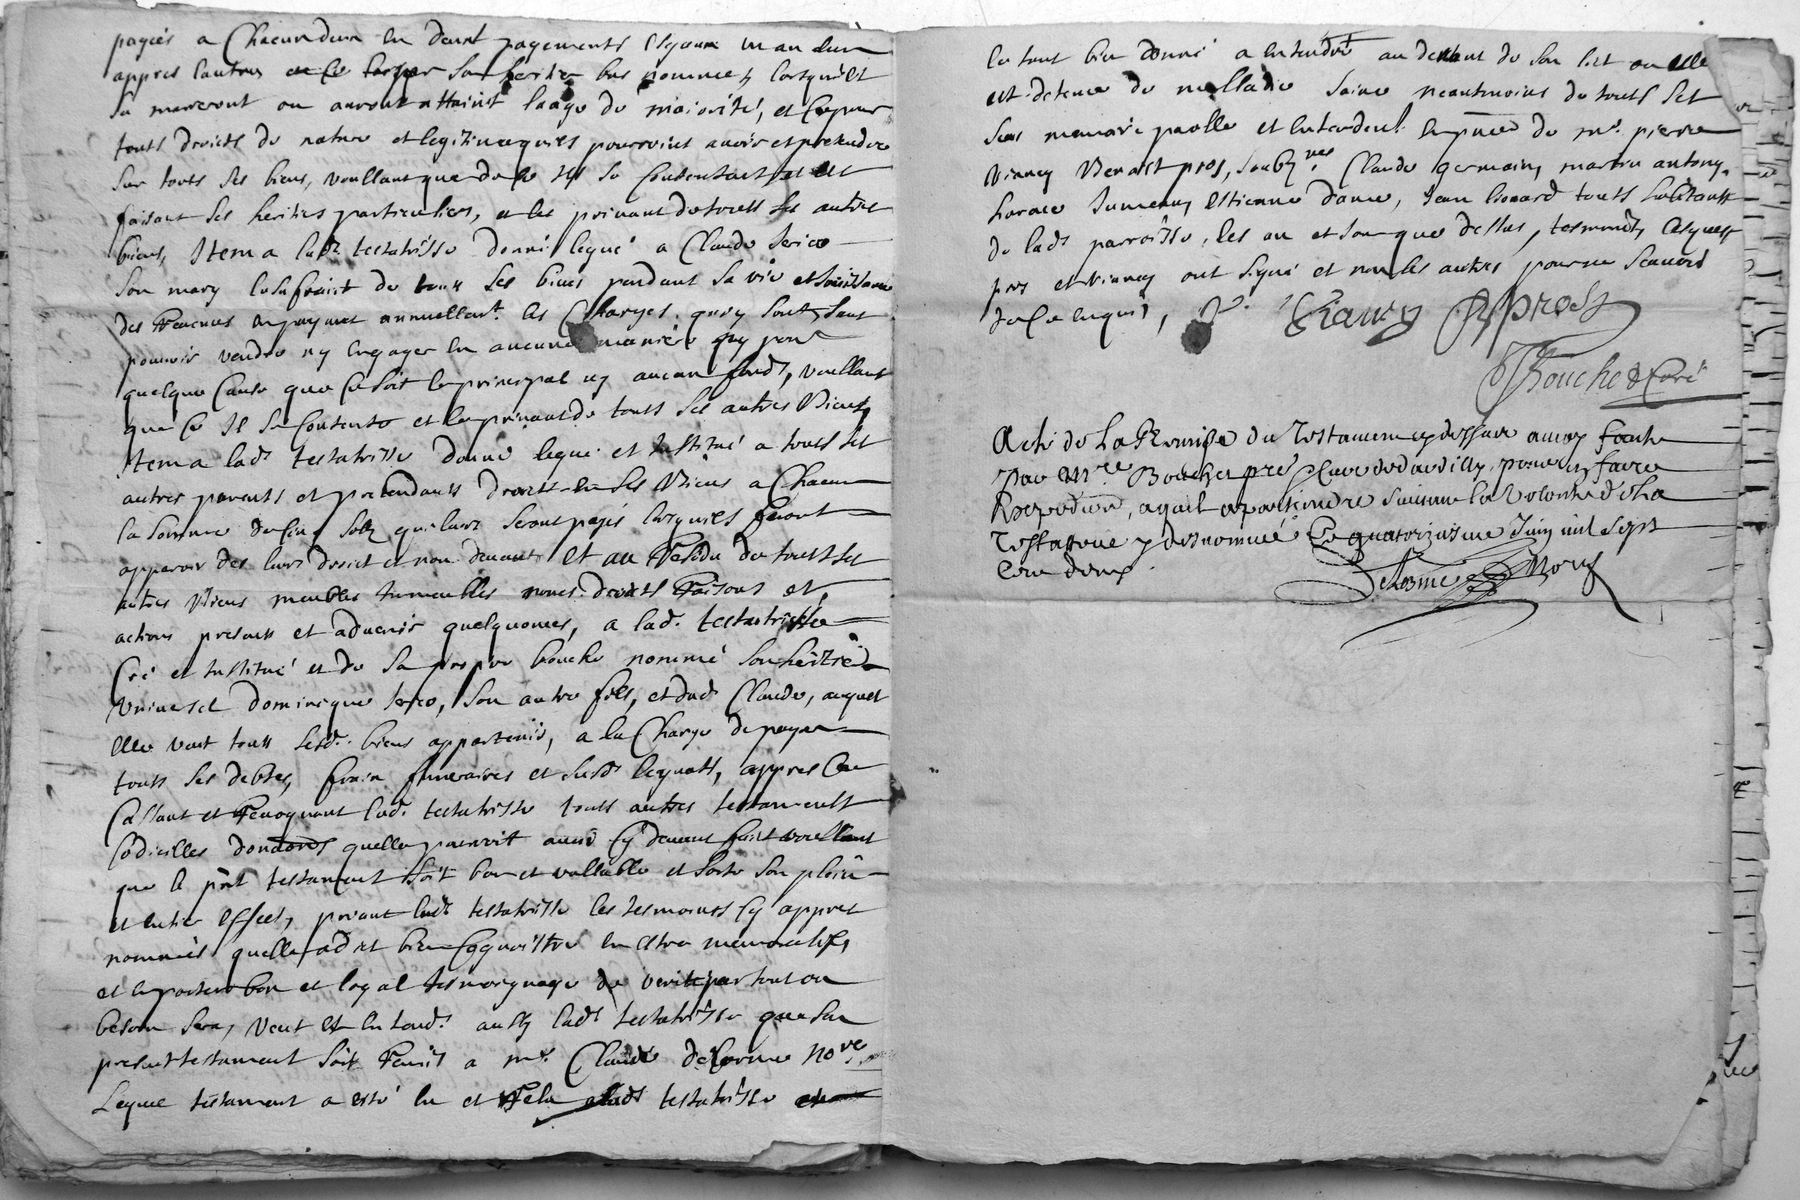 payées a Chacun deux en deux pagements esgaux un an lun
appres lautre et ce par son heritier bas nommé, lorsquils
se marieront ou auront attaint laage de maiorité, et ce pour
touts droicts de nature et legitime quils pourroint avoir et pretendre
sur touts ses biens, voullant que de ce ils se contentent et les
faisant ses heritiers particuliers, et les privant de touts ses autres
biens, Item a lad. testatrisse donné legué a Claude Serice
son mary lusufruict de tous ses biens pendant sa vie et jouissance
des revenus en payant annuellemt. les Charges quy sont, sans
pouvoir vendre ny engager en aucune maniere ny pour
quelque cause que ce soit le principal ny aucun fonds, voullant
que ce il se contente et le privant de touts ses autres biens,
Item a lade testatrisse donné legué et Institué a touts ses
autres parents et pretendants droict en ses biens a Chacun
la somme de cinq solz que leurs seront payés lorsquils feront
apparoir des leurs droict et non devant Et au Residu de touts ses
autres biens meubles Immeubles noms droicts Raisons et
actions presents et advenir quelquonnes, a lad. testatrisse
Créé et Institué et de sa propre bouche nommé son heritier
universel dominique Serice, son autre fils, et dud. Claude, auquel
elle veut touts sesd. biens appartenir, a la Charge de payer
touts ses debtes, frais funeraires et susd. leguatz, appres ce
Cassant et Revoquant lad. testatrisse touts autres testaments
codicilles donnaons quelle pourroit avoir cy devant faict voullant
que le pnt testament soit bon et vallable et sorte son plein
et entier effect, priant lade testatrisse les tesmoins cy appres
nommés quelle a dit bien cognoistre en estre memoratifs,
et en porter bon et loyal tesmoignage de verité partout ou
besoin sera, veut et entend. aussy lade testatrisse que son
present testament soit Remis a me. Claude delorme nore.
Lequel testament a esté lu et Relu a lade testatrisse et
le tout bien donné a entendre au devant de son lict ou elle
est detenue de malladie saine neantmoins de touts ses
sens memoire parolle et entendemt. en pnce de mr. pierre
Viancy Benoist pros, soubz nes Claude germain, martin antony,
horace Jumeau, Estienne dame, Jean Leonard touts habitants
de lade parroisse, les an et jour que dessus, tesmoins, lesquels
pros et viancy ont signé et non les autres pour ne scavoir
de ce enquis,
Viancy Bprost
Bouche Curé
Acte de la Remise du Testament cy dessus a moy faite
par Mre Bouche pre Cure pour en faire
Expedion, a qui il apartiendra suivant la Volonté de la
Testatrice y desnommée Ce quatorziesme Juin mil sept
cent deux.
Delorme Nore